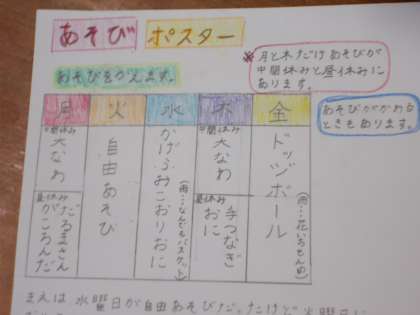 あそび ポスター
※月と木だけあそびが
中間休みと昼休みに
あります。
あそびをかえます。
あそびがかわる
ときもあります。
月 火 水 木 金
中間休み
大なわ
昼休み
だるまさん
がころんだ
自由あそび
かげふみこおりおに
(雨…なんでもバスケット)
中間休み
大なわ
昼休み
手つなぎ
おに
ドッジボール
(雨…花いちもんめ)
まえは水曜日が自由あそびだったけど火曜日に